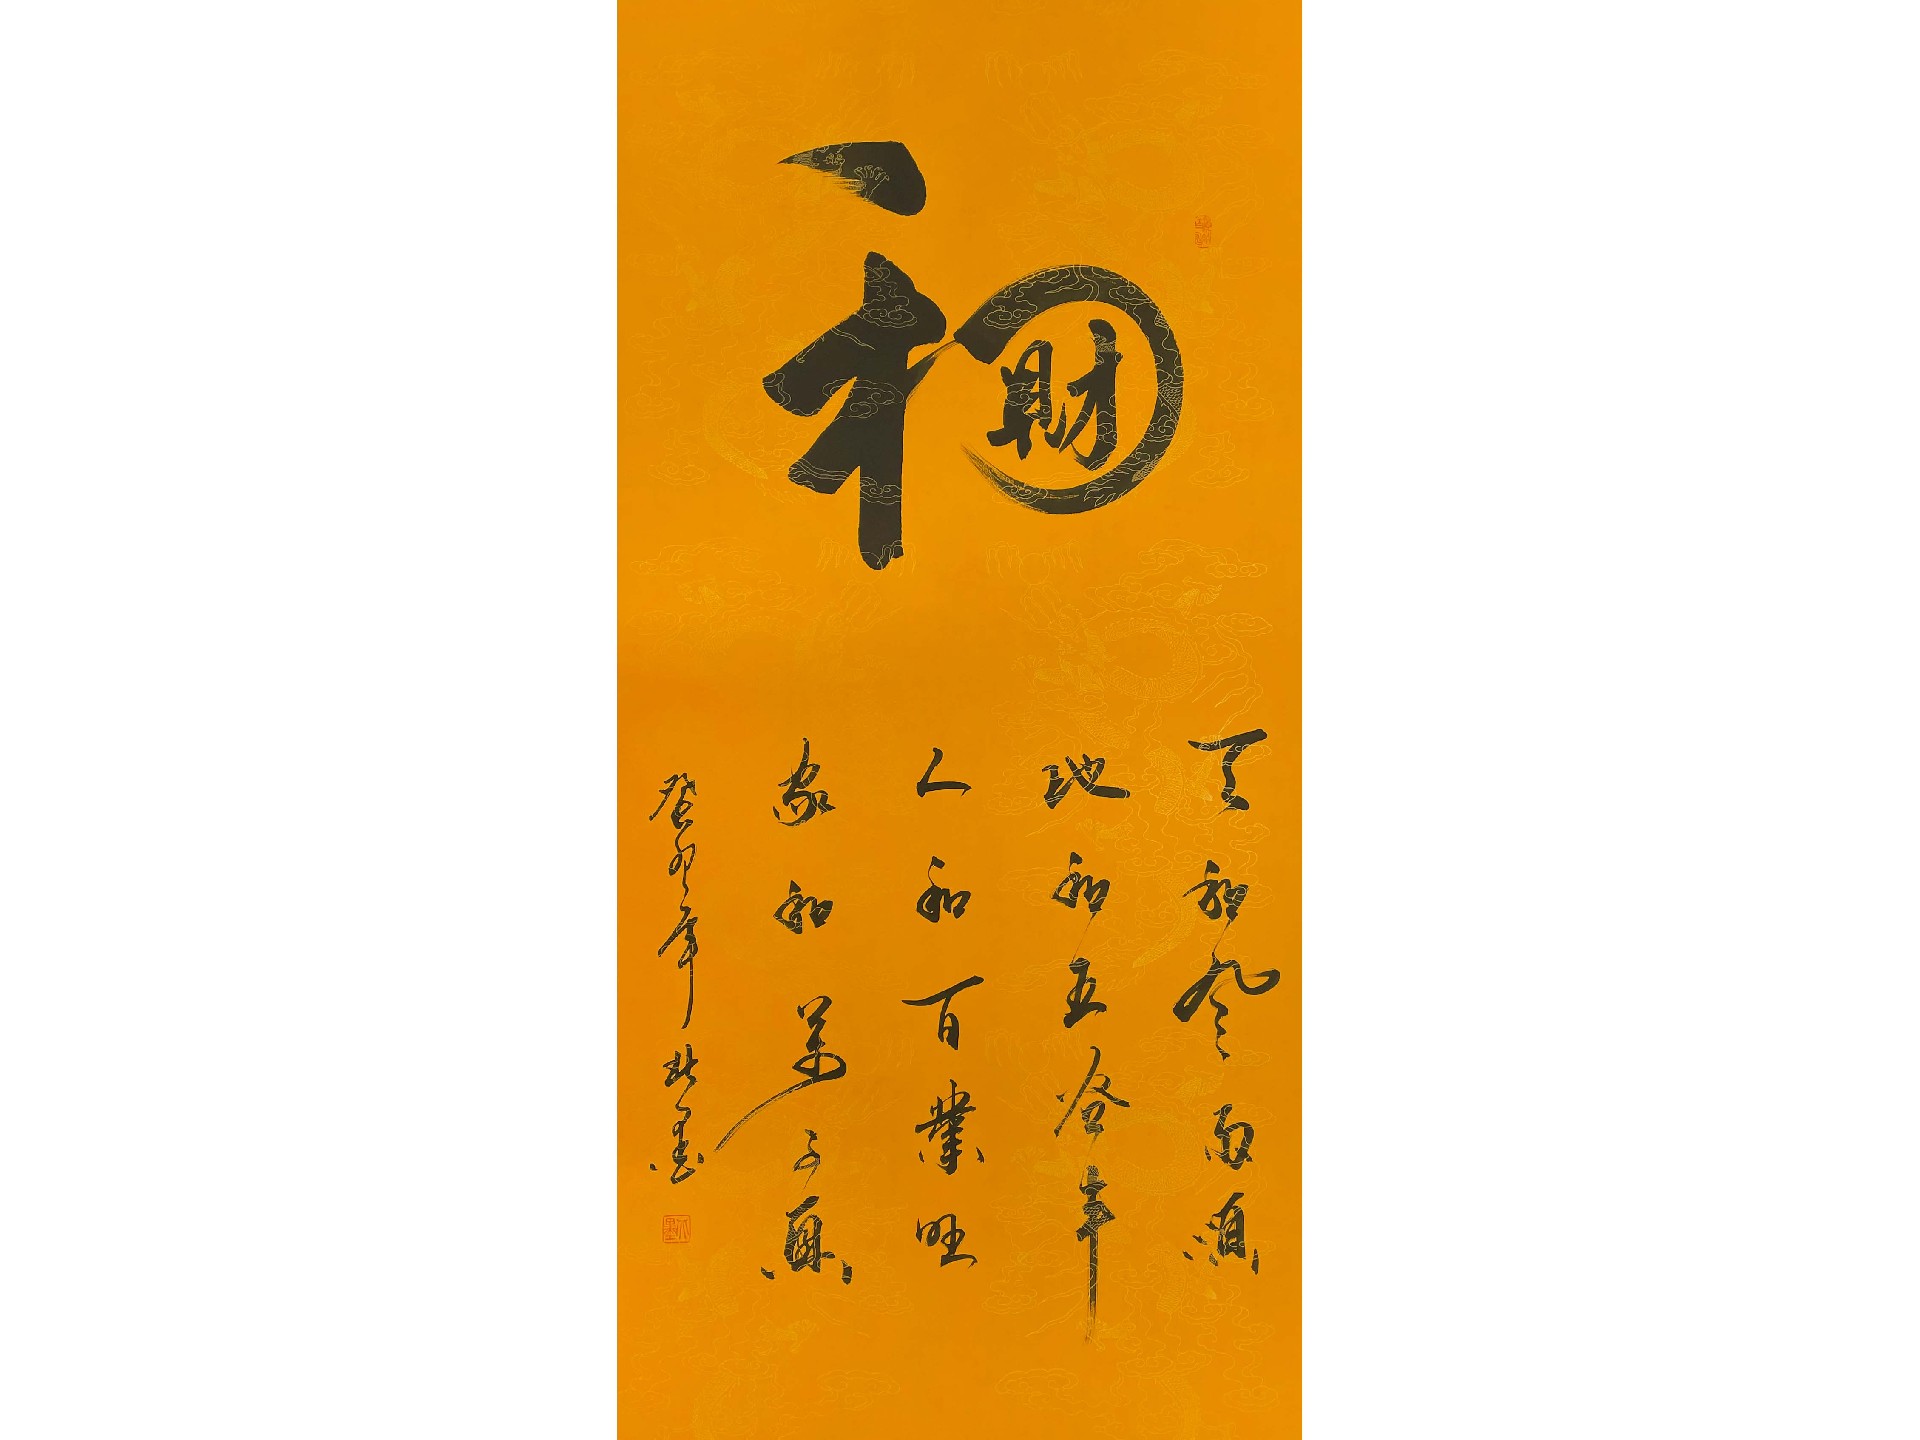 和
財
天和風雨順
地和五谷丰
人和百業旺
家和萬事興
癸卯年北墨